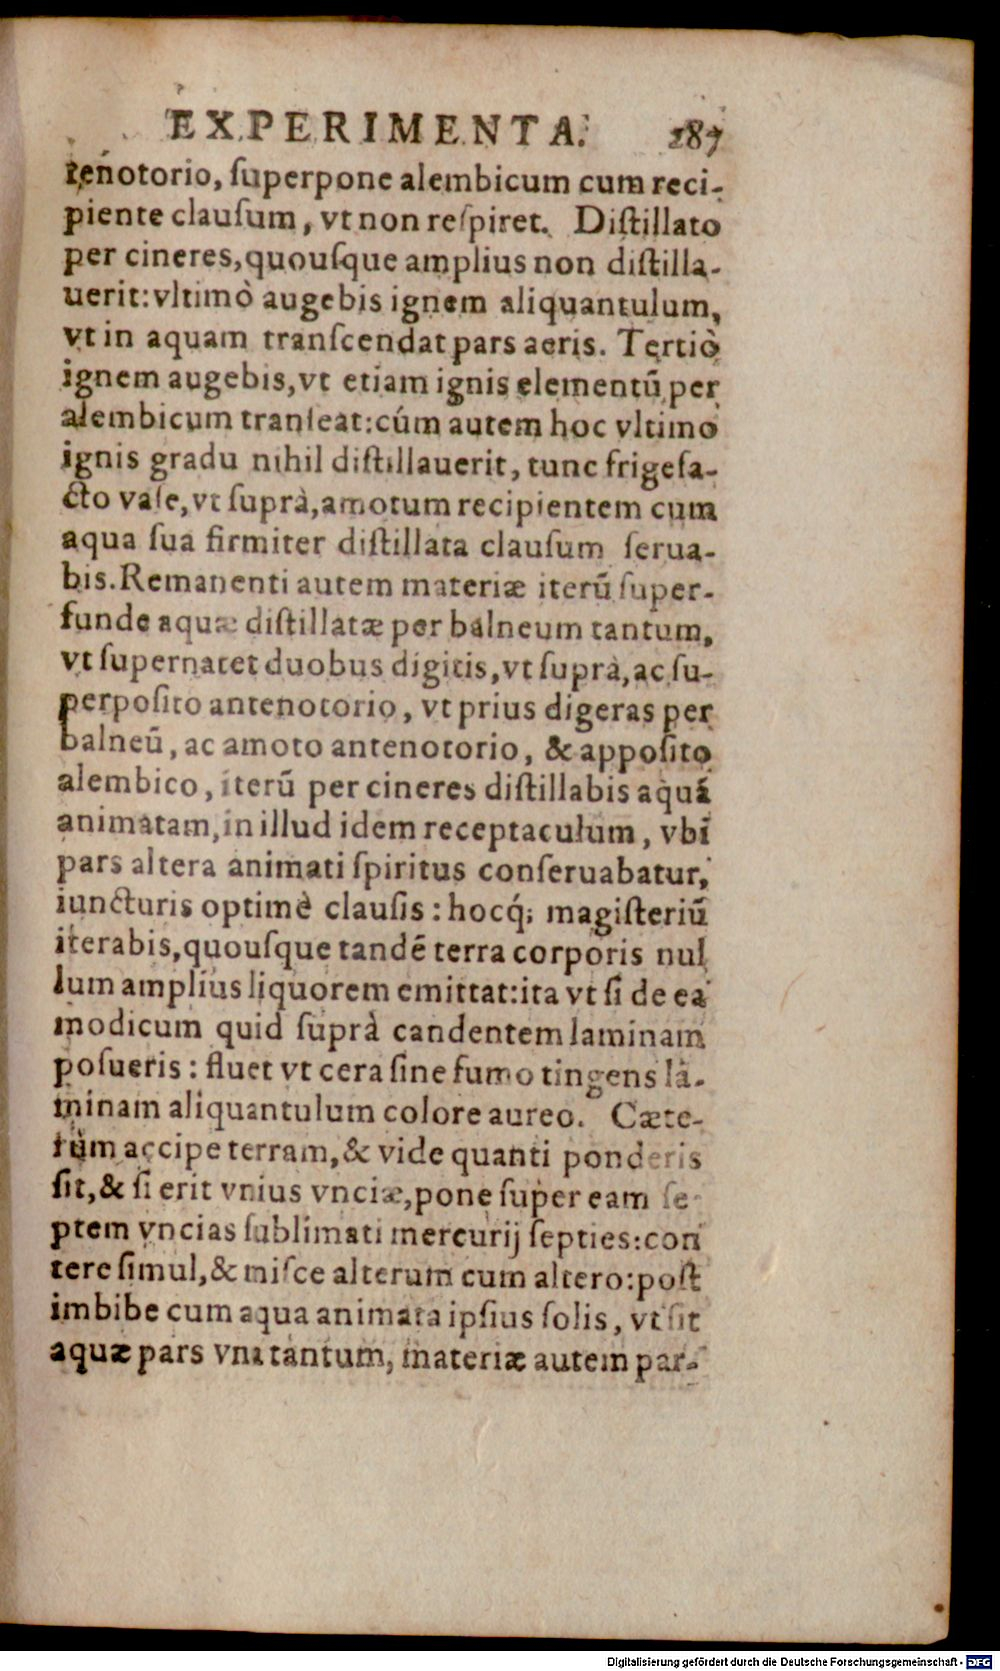 EXPERIMENTA. 187
tenotorio, ſuperpone alembicum cum reci-
piente clauſum, vt non reſpiret. Diſtillato
per cineres, quouſque amplius non diſtilla-
uerit: vltimò augebis ignem aliquantulum,
vt in aquam tranſcendat pars aeris. Tertiò
ignem augebis, vt etiam ignis elementũ per
alembicum tranſeat: cúm autem hoc vltimo
ignis gradu nihil diſtillauerit, tunc frigefa-
cto vaſe, vt ſuprà, amotum recipientem cum
aqua ſua firmiter diſtillata clauſum ſerua-
bis. Remanenti autem materiæ iterũ ſuper-
funde aquæ diſtillatæ per balneum tantum,
vt ſupernatet duobus digitis, vt ſuprà, ac ſu-
perpoſito antenotorio, vt prius digeras per
balneũ, ac amoto antenotorio, & appoſito
alembico, iterũ per cineres diſtillabis aquã
animatam, in illud idem receptaculum, vbi
pars altera animati ſpiritus conſeruabatur,
iuncturis optimè clauſis: hocq́; magiſteriũ
iterabis, quouſque tandẽ terra corporis nul
lum amplius liquorem emittat: ita vt ſi de ea
modicum quid ſuprà candentem laminam
poſueris: fluet vt cera ſine fumo tingens la-
minam aliquantulum colore aureo. Cæte-
rùm accipe terram, & vide quanti ponderis
ſit, & ſi erit vnius vnciæ, pone ſuper eam ſe
ptem vncias ſublimati mercurij ſepties: con
tere ſimul, & miſce alterum cum altero: poſt
imbibe cum aqua animata ipſius ſolis, vt ſit
aquæ pars vna tantum, materiæ autem par-
Digitalisierung gefördert durch die Deutsche Forschungsgemeinschaft - DFG